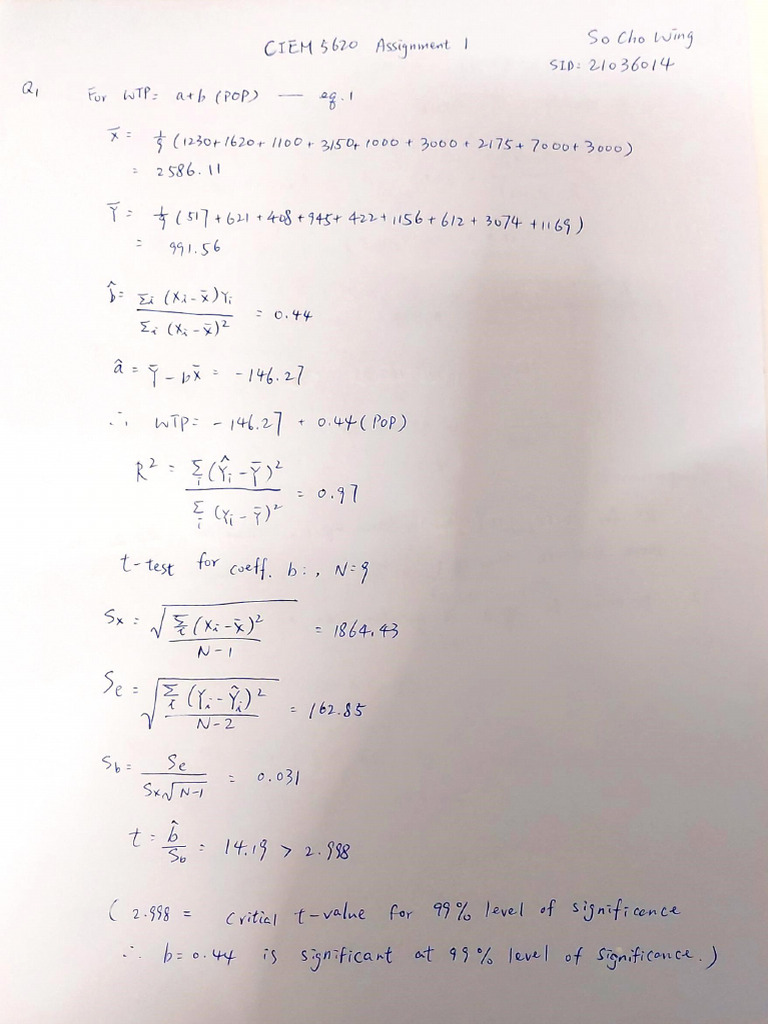 CIEM 5620 Assignment 1
So Cho Wing
SID: 21036014
Q1 For WTP = a+b (POP) — eq.1
x̄ = 1/9 (1230+1620+1100+3150+1000+3000+2175+7000+3000)
= 2586.11
Ȳ = 1/9 (517+621+408+945+422+1156+612+3074+1169)
= 991.56
b̂ = Σi (xi-x̄)Yi / Σi (xi-x̄)² = 0.44
â = Ȳ - bx̄ = -146.27
∴ WTP = -146.27 + 0.44(POP)
R² = Σi (Ŷi-Ȳ)² / Σi (Yi-Ȳ)² = 0.97
t-test for coeff. b:, N=9
Sx = √(Σi (xi-x̄)² / N-1) = 1864.43
Se = √(Σi (Yi-Ŷi)² / N-2) = 162.85
Sb = Se / Sx√N-1 = 0.031
t = b̂ / Sb = 14.19 > 2.998
( 2.998 = critial t-value for 99% level of significence
∴ b=0.44 is significant at 99% level of significance.)